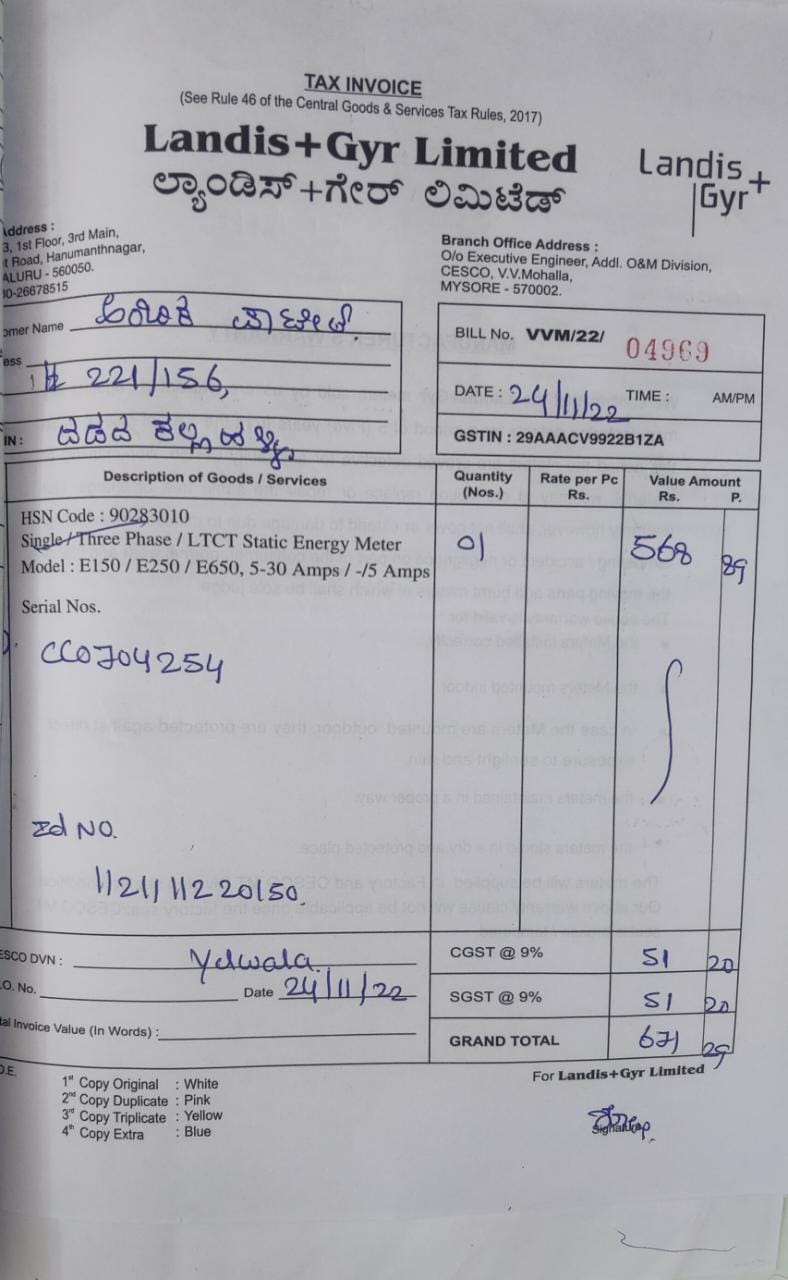 TAX INVOICE
(See Rule 46 of the Central Goods & Services Tax Rules, 2017)
Landis+Gyr Limited
ಲ್ಯಾಂಡಿಸ್+ಗೇರ್ ಲಿಮಿಟೆಡ್
Landis
Gyr+
Address :
3, 1st Floor, 3rd Main,
t Road, Hanumanthnagar,
ALURU - 560050.
80-26678515
Branch Office Address :
O/o Executive Engineer, Addl. O&M Division,
CESCO, V.V.Mohalla,
MYSORE - 570002.
omer Name
ess
# 221/156,
IN :
BILL No. VVM/22/ 04969
DATE : 24/11/22 TIME : AM/PM
GSTIN : 29AAACV9922B1ZA
Description of Goods / Services Quantity (Nos.) Rate per Pc Rs. Value Amount Rs. P.
HSN Code : 90283010
Single / Three Phase / LTCT Static Energy Meter 01 568 89
Model : E150 / E250 / E650, 5-30 Amps / -/5 Amps
Serial Nos.
CC0704254
NO.
ESCO DVN : Yelwala
CGST @ 9% 51 20
.O. No. Date 24/11/22
SGST @ 9% 51 20
tal Invoice Value (In Words) :
GRAND TOTAL 671 29
O.E.
For Landis+Gyr Limited
1st Copy Original : White
2nd Copy Duplicate : Pink
3rd Copy Triplicate : Yellow
4th Copy Extra : Blue